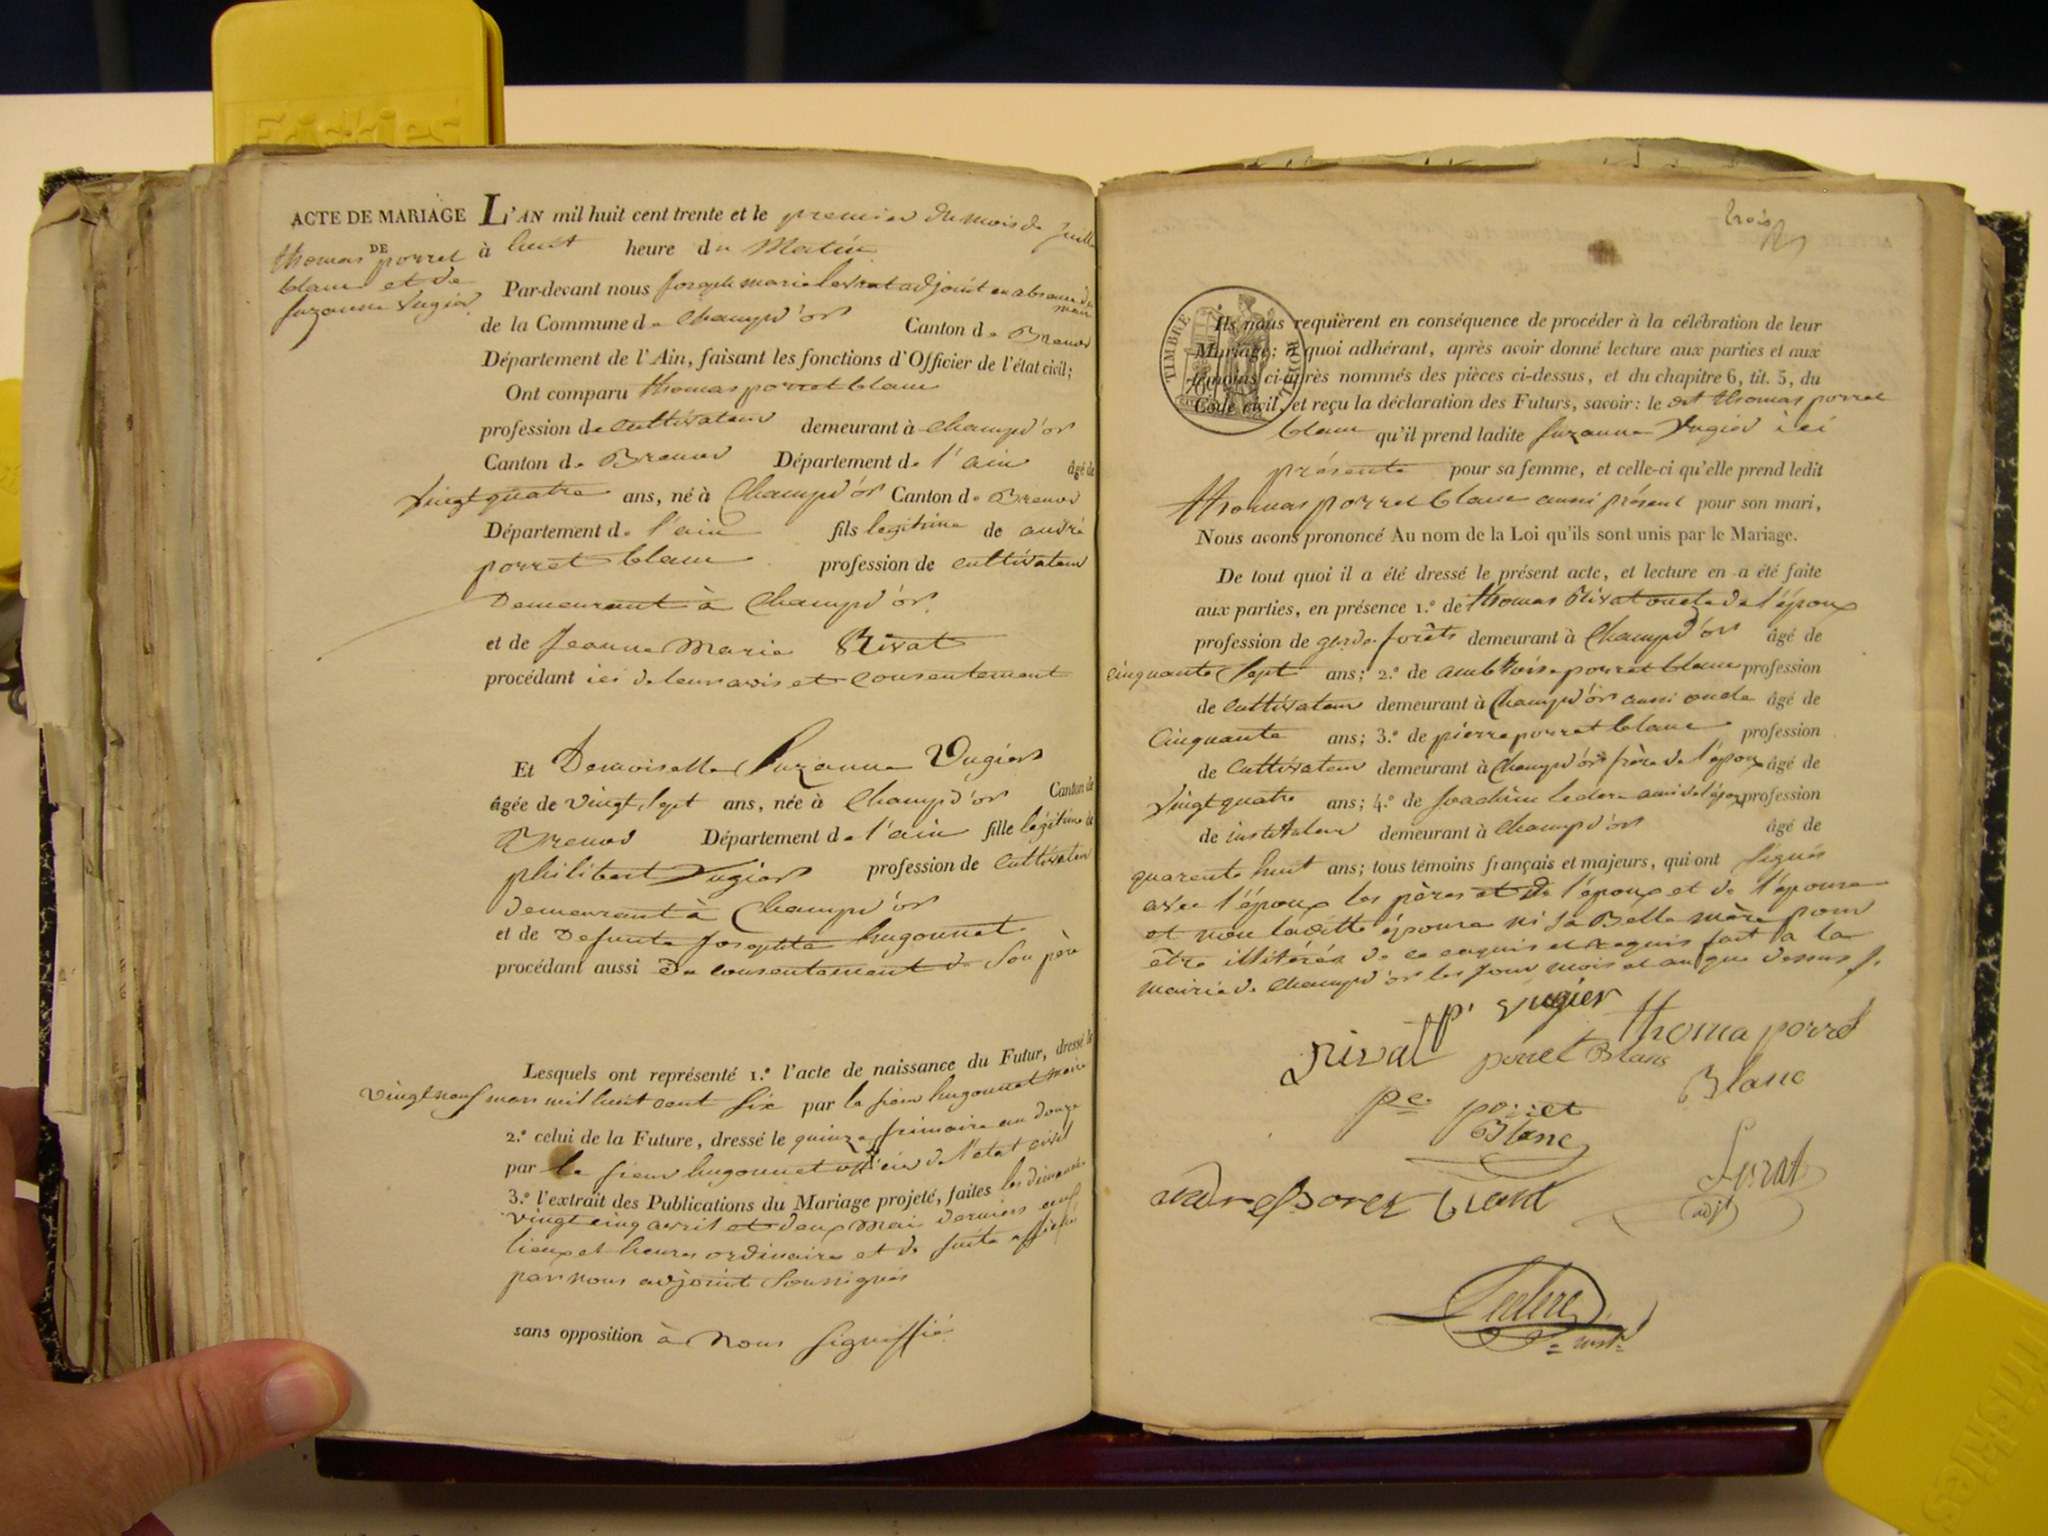 Friskies
ACTE DE MARIAGE
DE
thomas porret
blanc et de
Suzanne Vugier
L'AN mil huit cent trente et le premier du mois de Juillet
à huit heure du Matin
Par-devant nous Joseph marie Levrat adjoint en absence du
maire
de la Commune de Champd'or Canton de Brenod
Département de l'Ain, faisant les fonctions d'Officier de l'état civil;
Ont comparu thomas porret blanc
profession de Cultivateur demeurant à Champd'or
Canton de Brenod Département de l'ain âgé de
Vingt quatre ans, né à Champd'or Canton de Brenod
Département de l'ain fils legitime de andré
porret blanc profession de cultivateur
Demeurant à Champd'or
et de Jeanne Marie Rivat
procédant ici de leurs avis et Consentement
Et Demoiselle Suzanne Vugier
âgée de vingt Sept ans, née à Champd'or Canton de
Brenod Département de l'ain fille legitime de
philibert Vugier profession de Cultivateur
demeurant à Champd'or
et de Defunte Josephte hugonnet
procédant aussi Du consentement de Son père
Lesquels ont représenté 1.º l'acte de naissance du Futur, dressé le
Vingt neuf mars mil huit cent Six par le sieur hugonnet maire
2.º celui de la Future, dressé le quinze frimaire an douze
par le Sieur hugonnet officier de l'etat civil
3.º l'extrait des Publications du Mariage projeté, faites les dimanches
vingt cinq avril et deux Mai derniers aux
lieux et heures ordinaires et de suite affiché
par nous adjoint Soussignés
sans opposition à Nous Signiffié
trois
TIMBRE ROYAL
Ils nous requièrent en conséquence de procéder à la célébration de leur
Mariage; à quoi adhérant, après avoir donné lecture aux parties et aux
témoins ci-après nommés des pièces ci-dessus, et du chapitre 6, tit. 5, du
Code civil, et reçu la déclaration des Futurs, savoir: le dit thomas porret
blanc qu'il prend ladite Suzanne Vugier ici
présente pour sa femme, et celle-ci qu'elle prend ledit
thomas porret blanc aussi présent pour son mari,
Nous avons prononcé Au nom de la Loi qu'ils sont unis par le Mariage.
De tout quoi il a été dressé le présent acte, et lecture en a été faite
aux parties, en présence 1.º de thomas Rivat oncle de l'époux
profession de garde forêts demeurant à Champd'or âgé de
Cinquante Sept ans; 2.º de ambroise porret blanc profession
de Cultivateur demeurant à Champd'or aussi oncle âgé de
Cinquante ans; 3.º de pierre porret blanc profession
de Cultivateur demeurant à Champd'or frère de l'époux âgé de
Vingt quatre ans; 4.º de Joachim leclerc ami de l'époux profession
de instituteur demeurant à Champd'or âgé de
quarente huit ans; tous témoins français et majeurs, qui ont Signés
avec l'époux les pères et de l'époux et de l'épouse
et non laditte épouse ni Sa Belle mère pour
être illitérés de ce enquis et requis fait à la
mairie de Champd'or les Jour mois et an que dessus
p. Vugier
Rivat porret Blanc thoma porret
Blanc
pe porret
Blanc
andre porret blanc
Levrat
adjt
Leclerc
inst.
Friskies